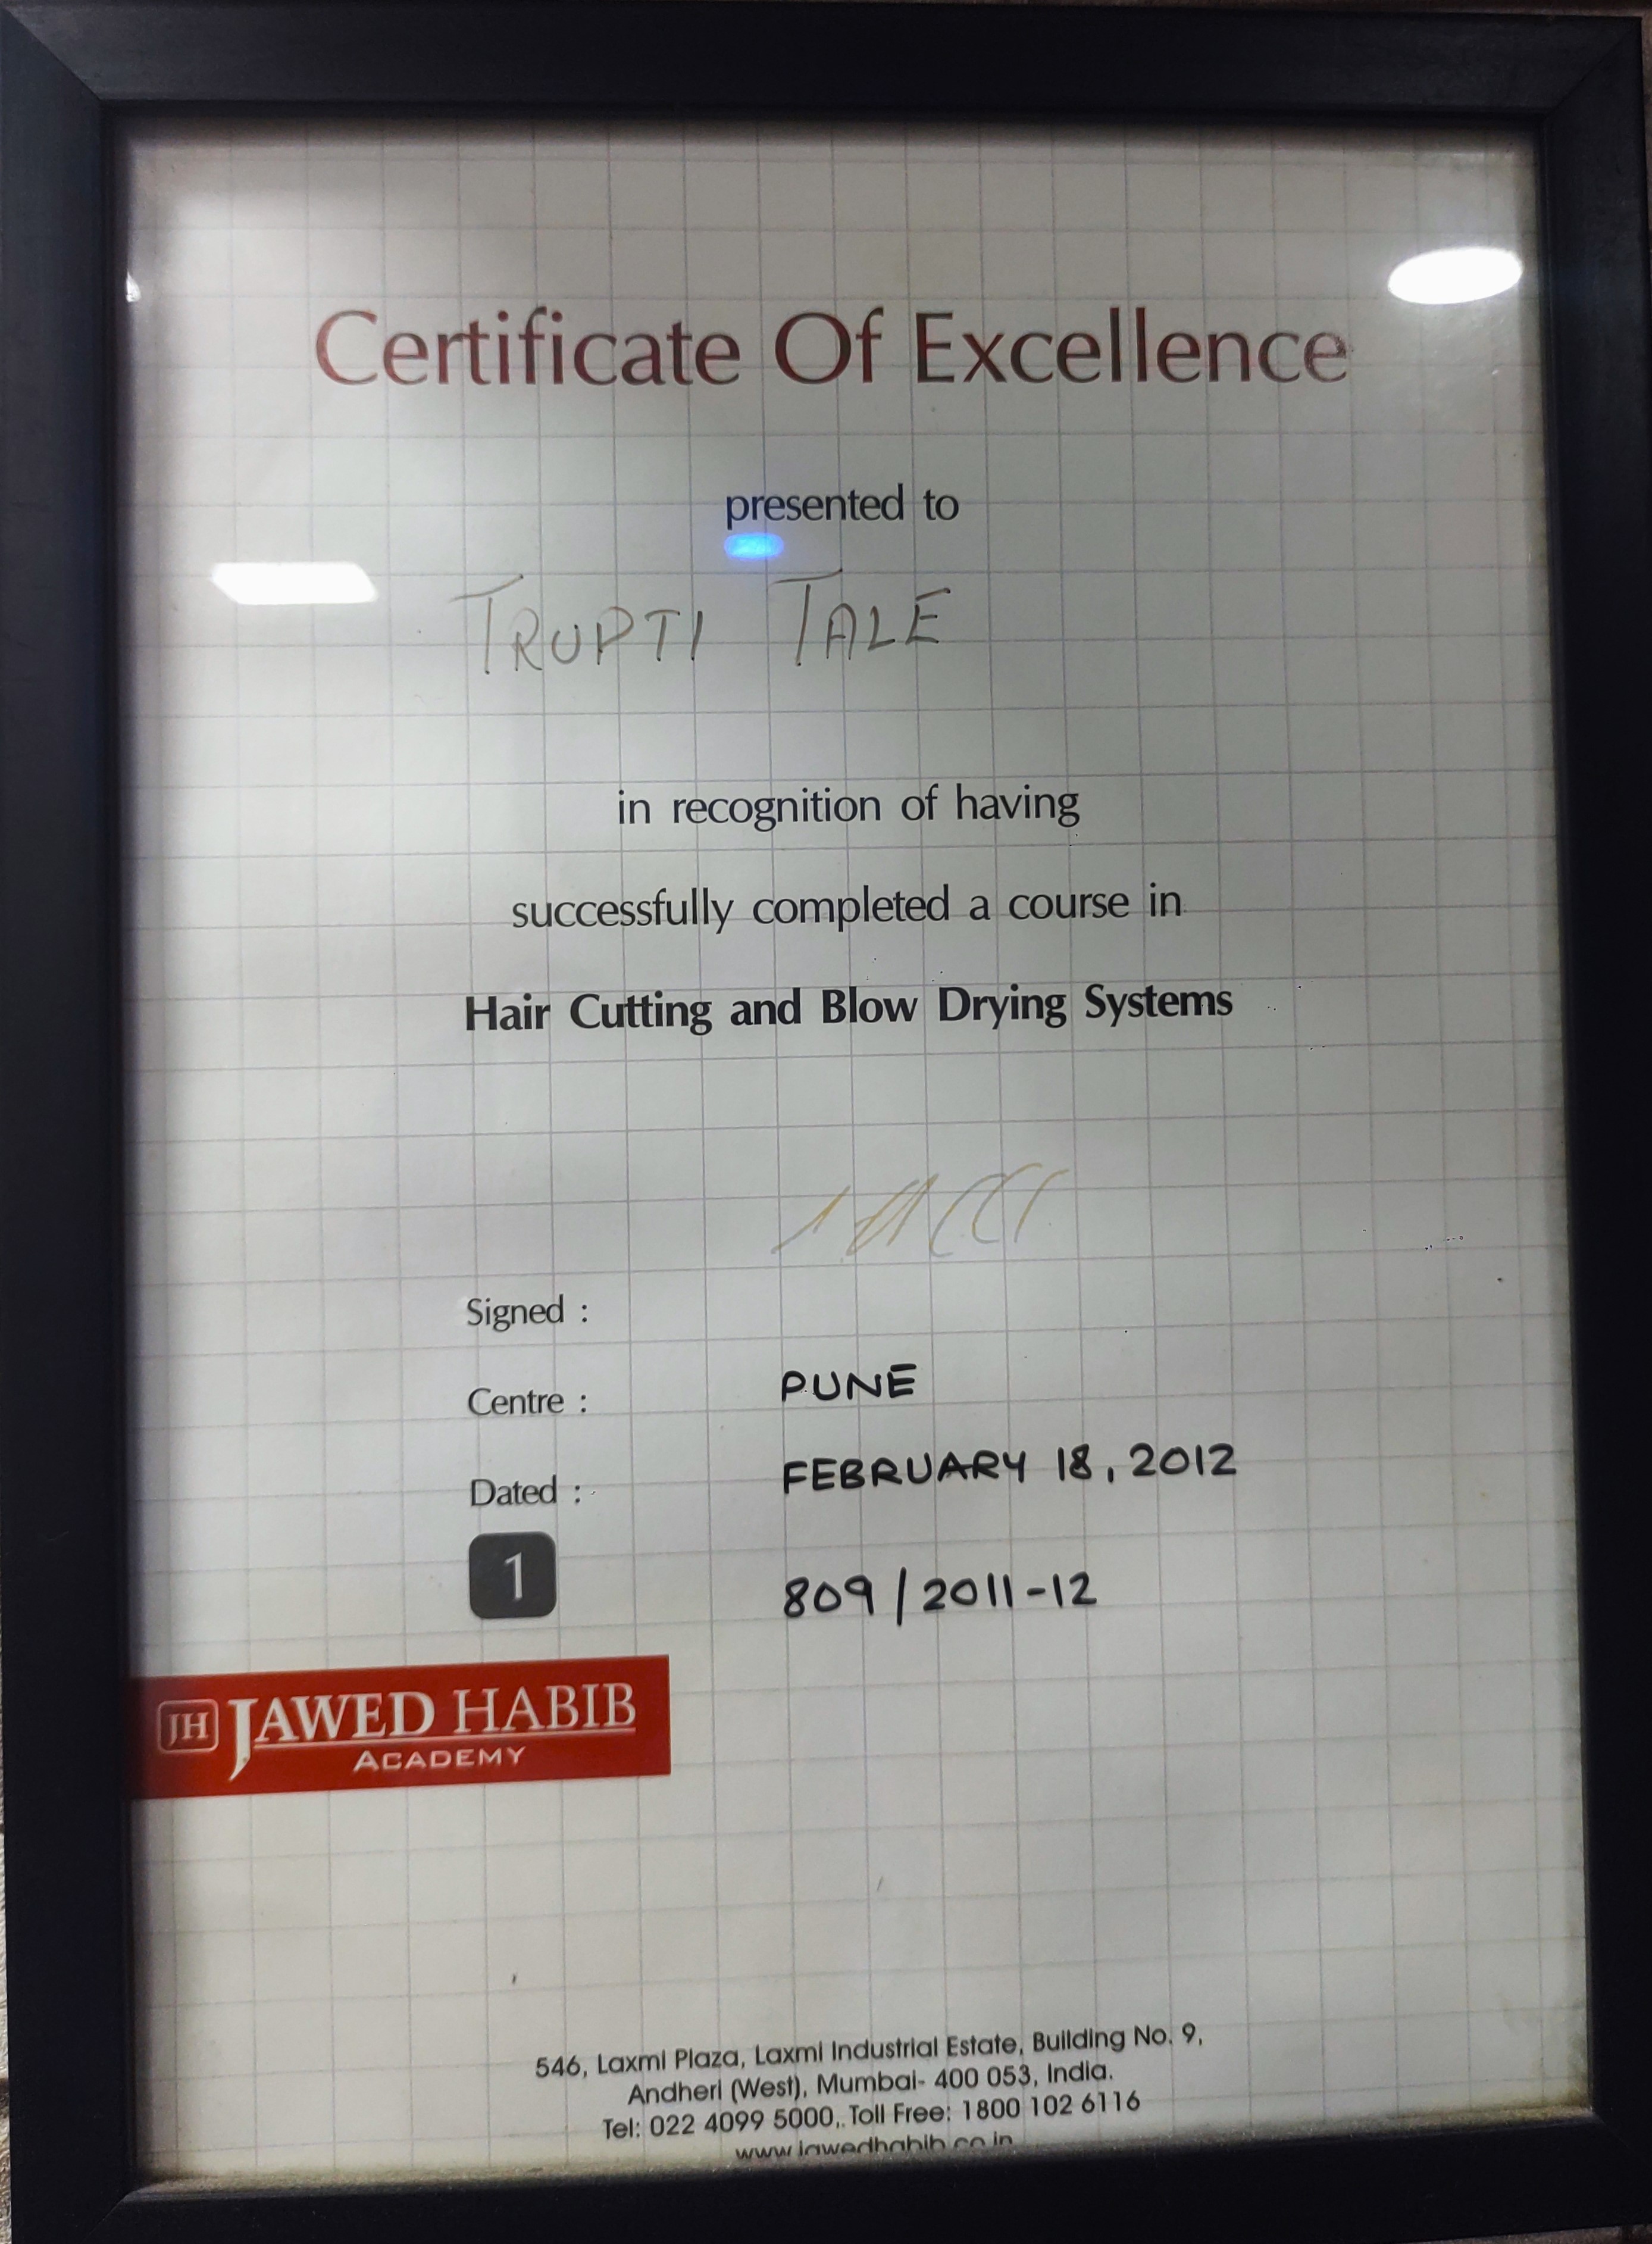 Certificate Of Excellence
presented to
TRUPTI TALE
in recognition of having
successfully completed a course in
Hair Cutting and Blow Drying Systems
Signed :
Centre : PUNE
Dated : FEBRUARY 18, 2012
1 809/2011-12
JH JAWED HABIB
ACADEMY
546, Laxmi Plaza, Laxmi Industrial Estate, Building No. 9,
Andheri (West), Mumbai- 400 053, India.
Tel: 022 4099 5000, Toll Free: 1800 102 6116
www.jawedhabib.co.in